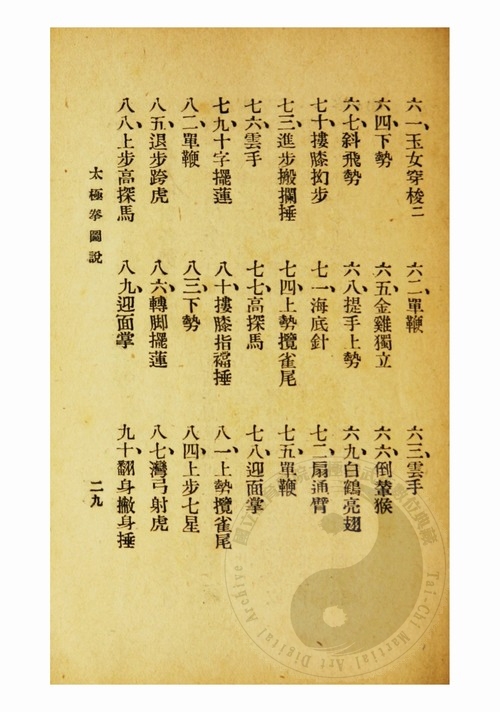 六一、玉女穿梭二　六二、單鞭　六三、雲手
六四、下勢　六五、金雞獨立　六六、倒輦猴
六七、斜飛勢　六八、提手上勢　六九、白鶴亮翅
七十、摟膝抝步　七一、海底針　七二、扇通臂
七三、進步搬攔捶　七四、上勢攬雀尾　七五、單鞭
七六、雲手　七七、高探馬　七八、迎面掌
七九、十字擺蓮　八十、摟膝指襠捶　八一、上勢攬雀尾
八二、單鞭　八三、下勢　八四、上步七星
八五、退步跨虎　八六、轉脚擺蓮　八七、灣弓射虎
八八、上步高探馬　八九、迎面掌　九十、翻身撇身捶
太極拳圖說　二九
Tai-Chi Martial Art Digital Archive